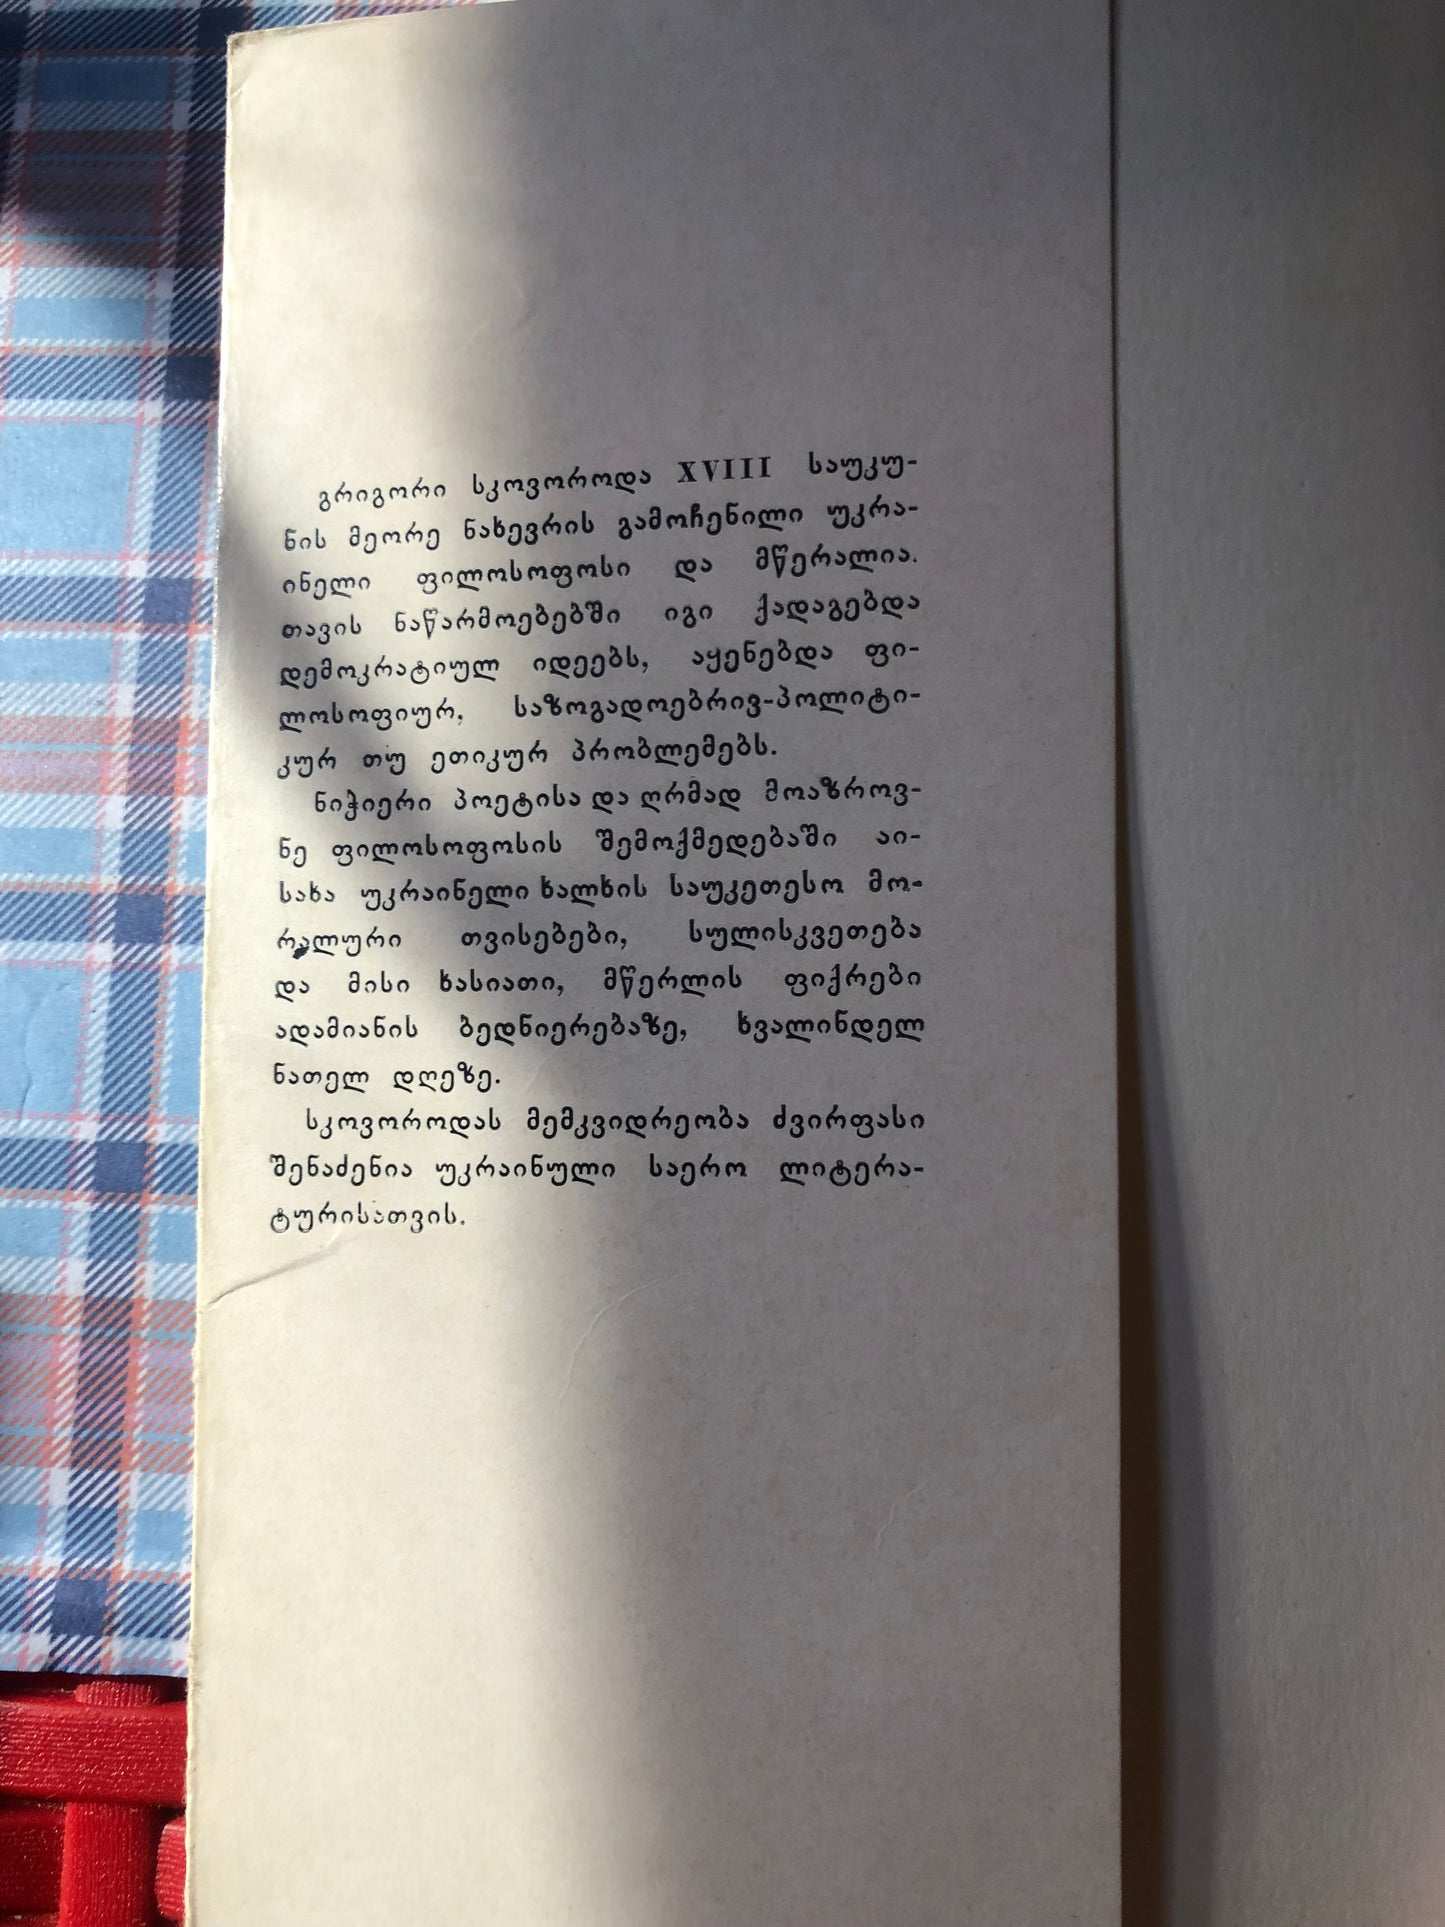 გრიგორი სკოვოროდა XVIII საუკუ-
ნის მეორე ნახევრის გამოჩენილი უკრა-
ინელი ფილოსოფოსი და მწერალია.
თავის ნაწარმოებებში იგი ქადაგებდა
დემოკრატიულ იდეებს, აყენებდა ფი-
ლოსოფიურ, საზოგადოებრივ-პოლიტი-
კურ თუ ეთიკურ პრობლემებს.
ნიჭიერი პოეტისა და ღრმად მოაზროვ-
ნე ფილოსოფოსის შემოქმედებაში აი-
სახა უკრაინელი ხალხის საუკეთესო მო-
რალური თვისებები, სულისკვეთება
და მისი ხასიათი, მწერლის ფიქრები
ადამიანის ბედნიერებაზე, ხვალინდელ
ნათელ დღეზე.
სკოვოროდას მემკვიდრეობა ძვირფასი
შენაძენია უკრაინული საერო ლიტერა-
ტურისათვის.